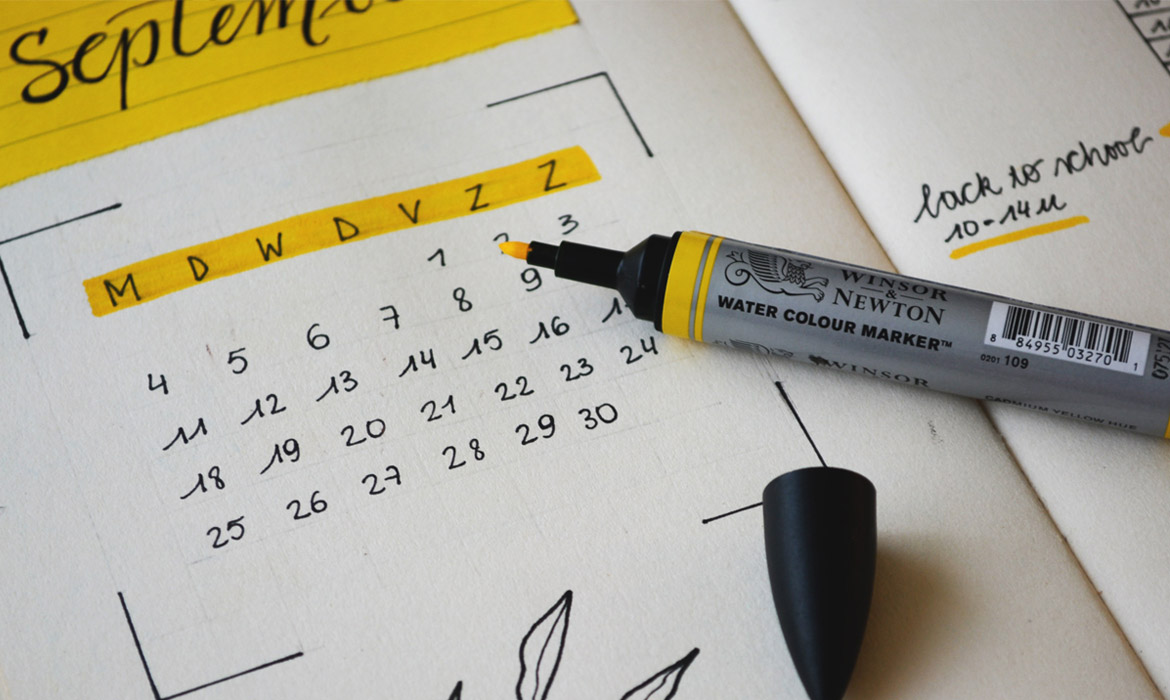 Septem
M D W D V Z Z
1 2 3
4 5 6 7 8 9
11 12 13 14 15 16 1
18 19 20 21 22 23 24
25 26 27 28 29 30
back to school
10-14u
WINSOR
&
NEWTON
WATER COLOUR MARKER™
8 84955 03270 1
0201 109
WINSOR
CADMIUM YELLOW HUE